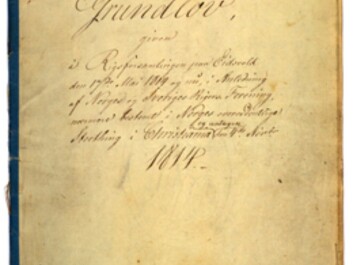 Grundlov,
given
i Rigsforsamlingen paa Eidsvold
den 17de Mai 1814 og nu, i Anledning
af Norges og Sveriges Rigers Forening,
nærmere bestemt i Norges overordentlige
og antagen
Storthing i Christiania den 4de Novbr
1814.